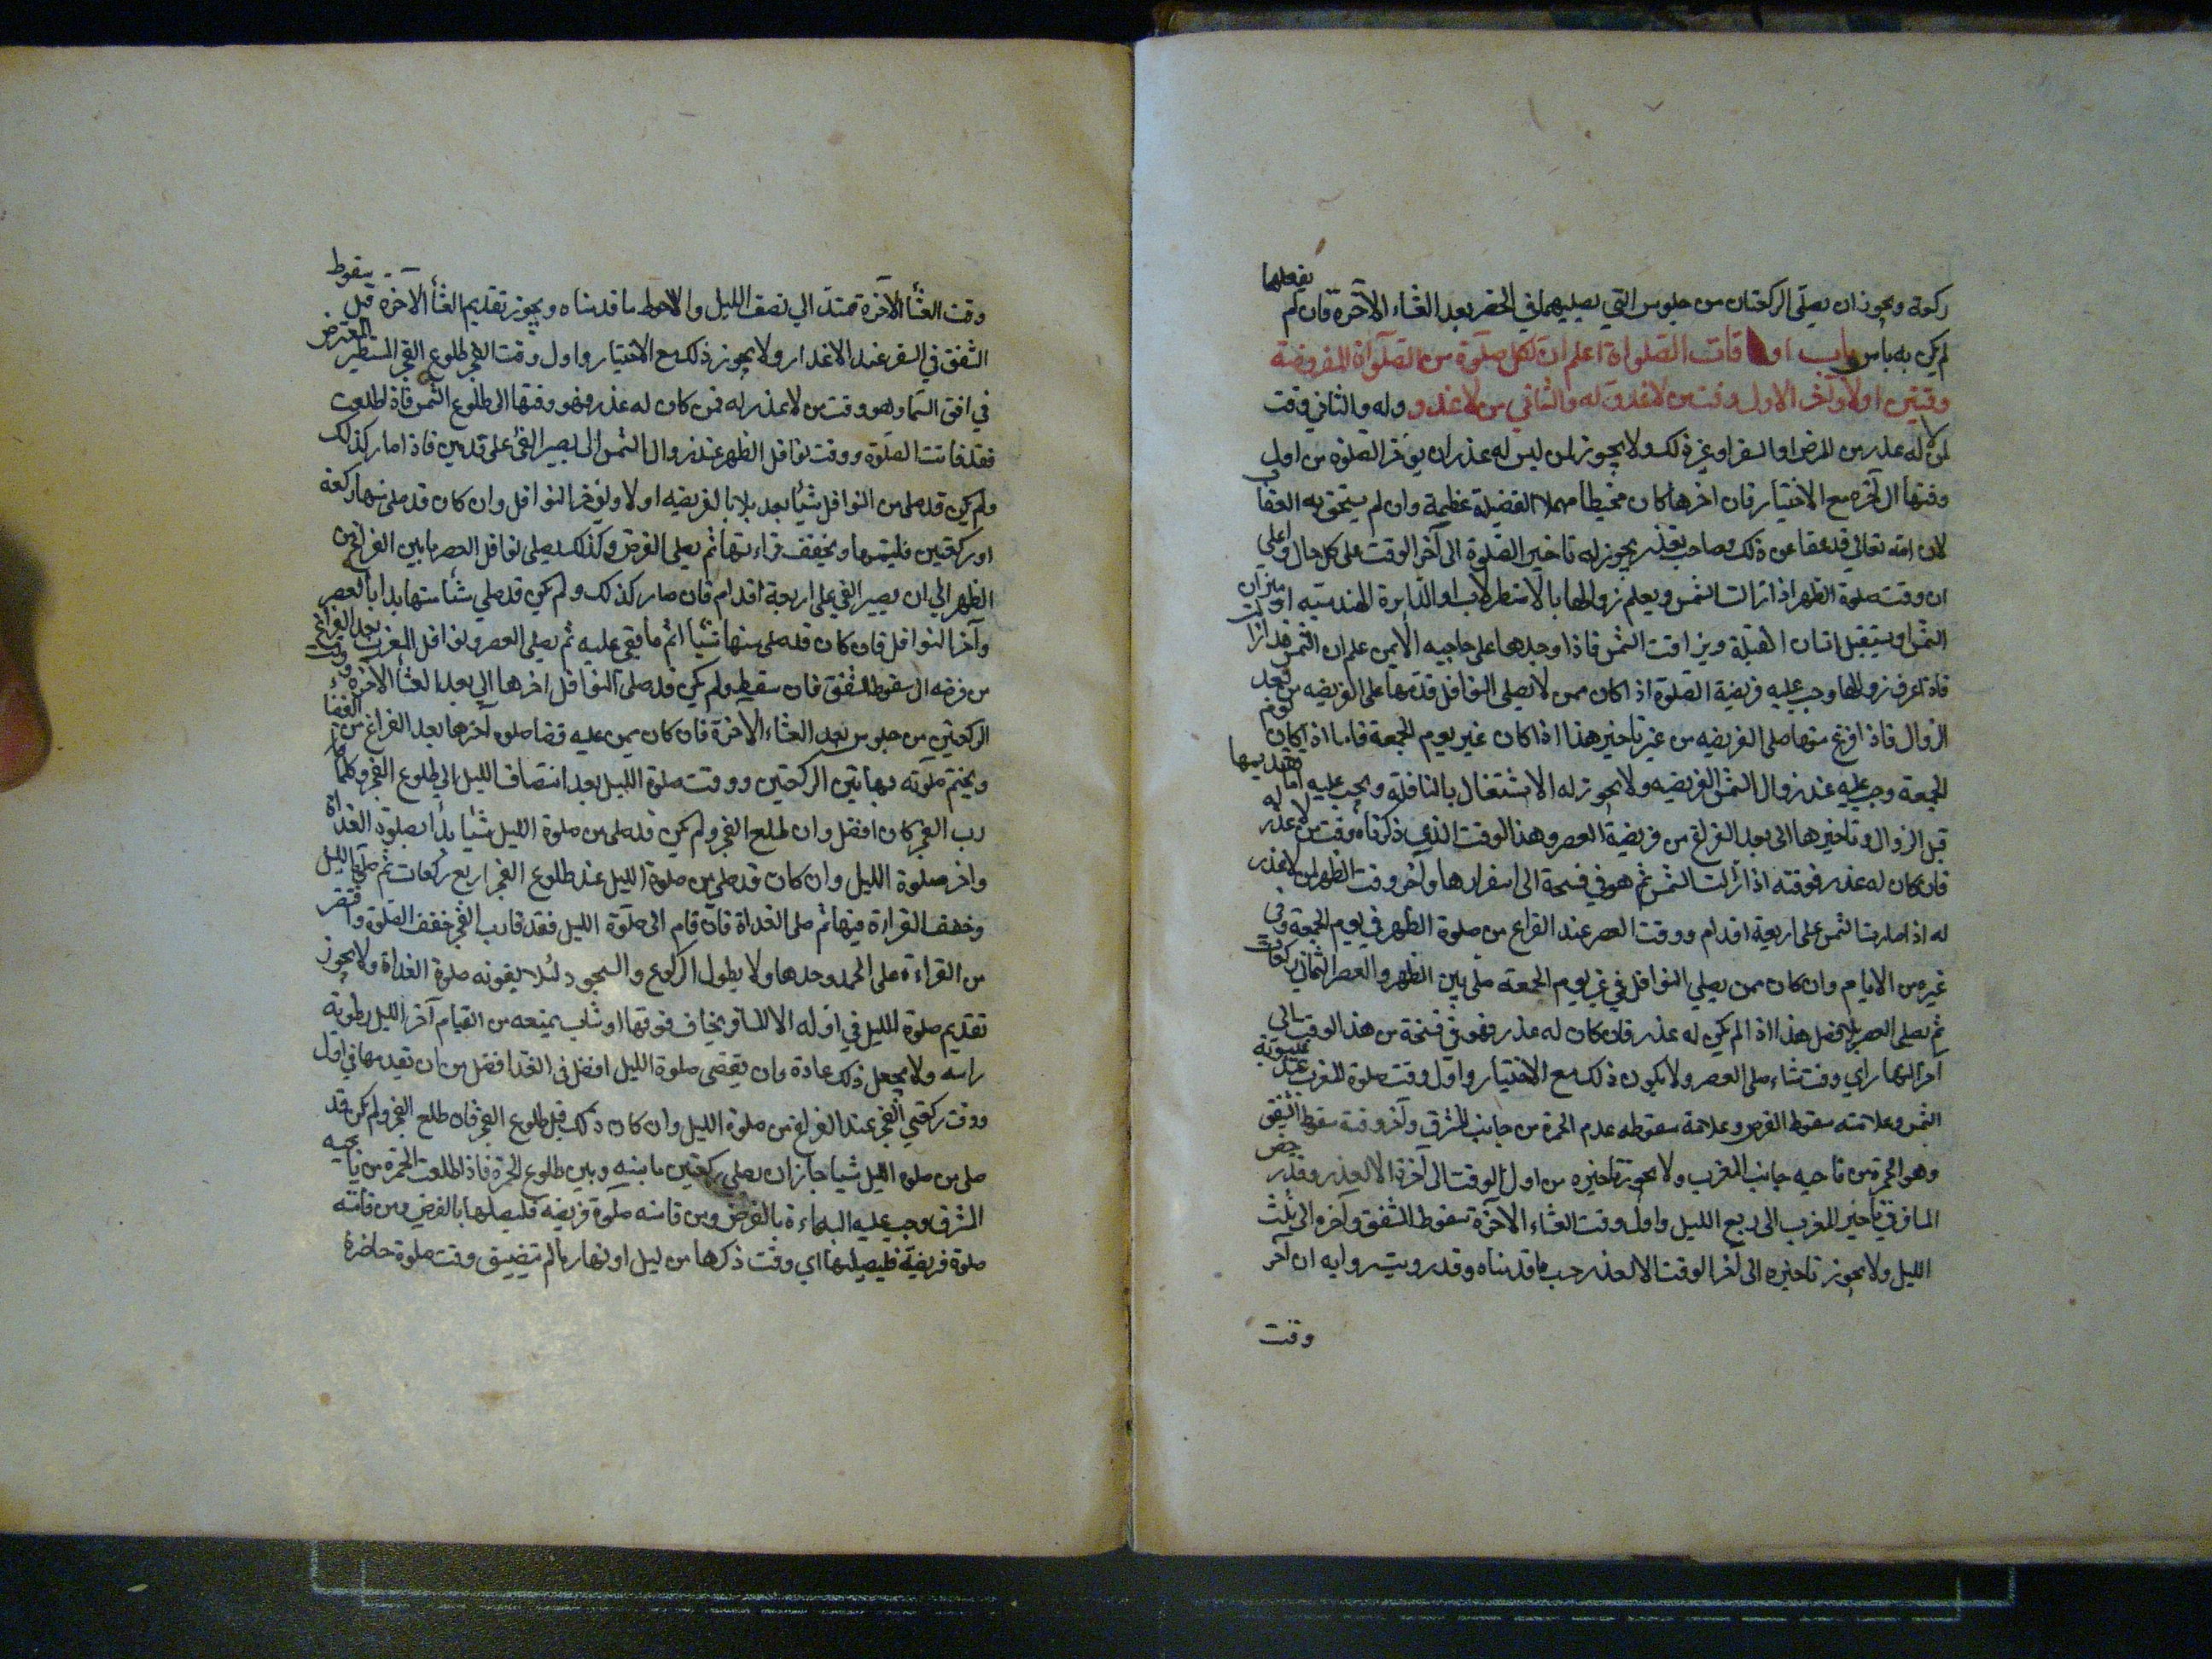 ركوة ويجوز ان يصلي الركعتان من جلوس التي يصليهما في الحضر بعد العشاء الآخرة فان لم يفعلهما
لم يكن به باس باب اوقات الصلواة اعلم ان لكل صلوة من الصلواة المفروضة
وقتين اولا وآخر الاول وقت من لا عذر له والثاني من لا عذر و وله والثاني وقت
لمن له عذر من المرض او السفر او غير ذلك ولا يجوز لمن ليس له عذر ان يؤخر الصلوة من اول
وقتها الى آخره مع الاختيار فان اخرها كان مخطيا مهملا لفضيلة عظيمة وان لم يستحق به العقاب
لان الله تعالى قد عفا عن ذلك وصاحب بعذر يجوز له تاخير الصلوة الى آخر الوقت على كل حال واعلم
ان وقت صلوة الظهر اذا زالت الشمس ويعلم زوالها بالاسطرلاب او الدايرة الهندسية او ميزان
الشمس او يستقبل انسان القبلة ويراقب الشمس فاذا وجدها على حاجبه الايمن علم ان الشمس قد زالت
فاذا عرف زوالها وجب عليه فريضة الصلوة اذا كان ممن لا يصلى النوافل قدمها على الفريضه من بعد
الزوال فاذا فرغ منها صلى الفريضه من غير تاخير هذا اذا كان غير يوم الجمعة فاما اذا كان يوم
الجمعة وجب عليه عند زوال الشمس الفريضه ولا يجوز له الاشتغال بالنافلة ويجب عليه اما تقديمها
قبل الزوال وتاخيرها الى بعد الفراغ من فريضة العصر وهذا الوقت الذي ذكرناه وقت من لا عذر له
فان كان له عذر فوقته اذا زالت الشمس ثم هو في فسحة الى اسفرارها وآخر وقت الظهر لمن لا عذر
له اذا صارت الشمس على اربعة اقدام ووقت العصر عند الفراغ من صلوة الظهر في يوم الجمعة وفي
غيره من الايام وان كان ممن يصلي النوافل في غير يوم الجمعة صلى بين الظهر والعصر الثماني ركعات
ثم يصلى العصر بلا فصل هذا اذا لم يكن له عذر فان كان له عذر فهو في فسحة من هذا الوقت الى
آخر النهار اي وقت شاء صلى العصر ولا يكون ذلك مع الاختيار واول وقت صلوة المغرب عند غيبوبة
الشمس وعلامته سقوط القرص وعلامة سقوطه عدم الحمرة من جانب المشرق وآخر وقته سقوط الشفق
وهو الحمرة من ناحيه جانب المغرب ولا يجوز تاخيره من اول الوقت الى آخره الا لعذر وقد رخص
المسافر في تاخير المغرب الى ربع الليل واول وقت العشاء الآخرة سقوط الشفق وآخره الى ثلث
الليل ولا يجوز تاخيره الى آخر الوقت الا لعذر حسب ما قدمناه وقد رويت روايه ان آخر
وقت
وقت العشأ الآخرة تمتد الي نصف الليل والاحوط ما قدمناه ويجوز تقديم العشأ الآخرة قبل سقوط
الشفق في السفر عند الاعذار ولا يجوز ذلك مع الاختيار واول وقت الفجر طلوع الفجر المستطير المعترض
في افق السماء وهو وقت من لا عذر له فمن كان له عذر فهو وقتها الى طلوع الشمس فاذا طلعت
فقد فاتت الصلوة ووقت نوافل الظهر عند زوال الشمس الى يصير الفئ على قدمين فاذا صار كذلك
ولم يكن قد صلى من النوافل شيئا بعد بدا بالفريضه اولا ويؤخر النوافل وان كان قد صلى منها ركعة
او ركعتين فليتمها ويخفف قراءتها ثم يصلى الفرض وكذلك يصلى نوافل العصر ما بين الفراغ من
الظهر الي ان يصير الفي على اربعة اقدام فان صار كذلك ولم يكن قد صلي شئا منها بدا بالعصر
وآخر النوافل فان كان قد صلى منها شيئا اتم ما بقى عليه ثم يصلى العصر ونوافل المغرب بعد الفراغ
من فرضه الى سقوط الشفق فان سقط ولم يكن قد صلى النوافل اخرها الى بعد العشأ الآخرة ووقت
الركعتين من جلوس بعد العشاء الاخرة فان كان ممن عليه قضا صلوة اخرها بعد الفراغ من القضاء
ويختم صلوته بهاتين الركعتين ووقت صلوة الليل بعد انتصاف الليل الي طلوع الفجر وكلما
رب الفجر كان افضل وان طلع الفجر ولم يكن قد صلى من صلوة الليل شئيا بدأ بصلوة الغداة
واخر صلوة الليل وان كان قد صلى من صلوة الليل عند طلوع الفجر اربع ركعات ثم صلوة الليل
وخفف القراءة فيها ثم صلى الغداة فان قام الى صلوة الليل فقد قارب الفجر خفف الصلوة واقتصر
من القراءة على الحمد وحدها ولا يطول الركوع والسجود لئلا يفوته صلوة الغداة ولا يجوز
تقديم صلوة الليل في اوله الا لمسافر يخاف فوتها او شاب يمنعه من القيام آخر الليل رطوبة
راسه ولا يجعل ذلك عادة وان يقضي صلوة الليل افضل فى الغدا افضل من ان تقديمها في اول
ووقت ركعتي الفجر عند الفراغ من صلوة الليل وان كان ذلك قبل طلوع الفجر فان طلع الفجر ولم يكن قد
صلى من صلوة الليل شيئا جاز ان يصلي ركعتين ما بينه وبين طلوع الحمرة فاذا طلعت الحمرة من ناحيه
المشرق وجب عليه البداءة بالفرض ومن فاتته صلوة فريضه فليصلها بالفرض ومن فاتته
صلوة فريضة فليصليها اي وقت ذكرها من ليل او نهار ما لم يتضيق وقت صلوة حاضرة